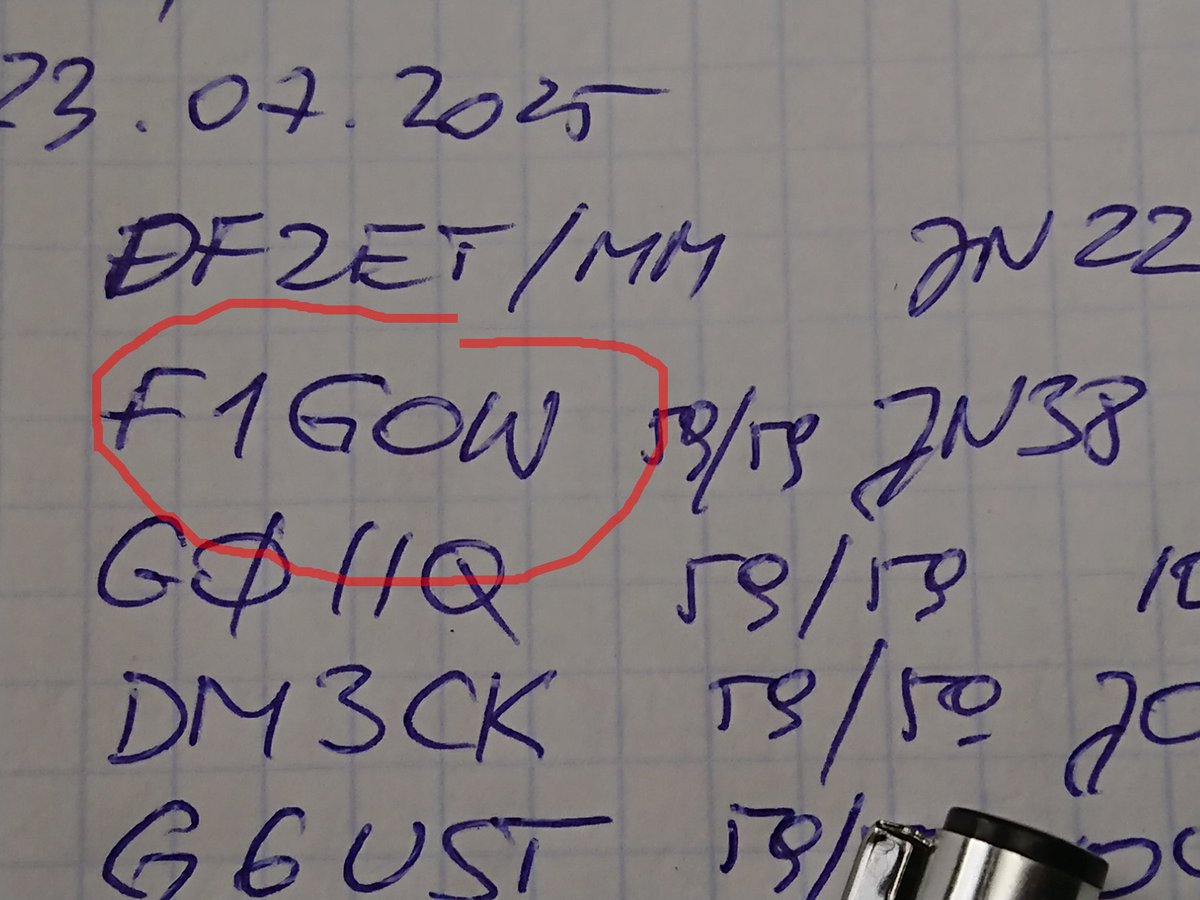 23.07.2025
DF2ET/MM JN22
F1GOW 59/59 JN38
GØIIQ 59/59
DM3CK 59/59 JO
G6UST 59/